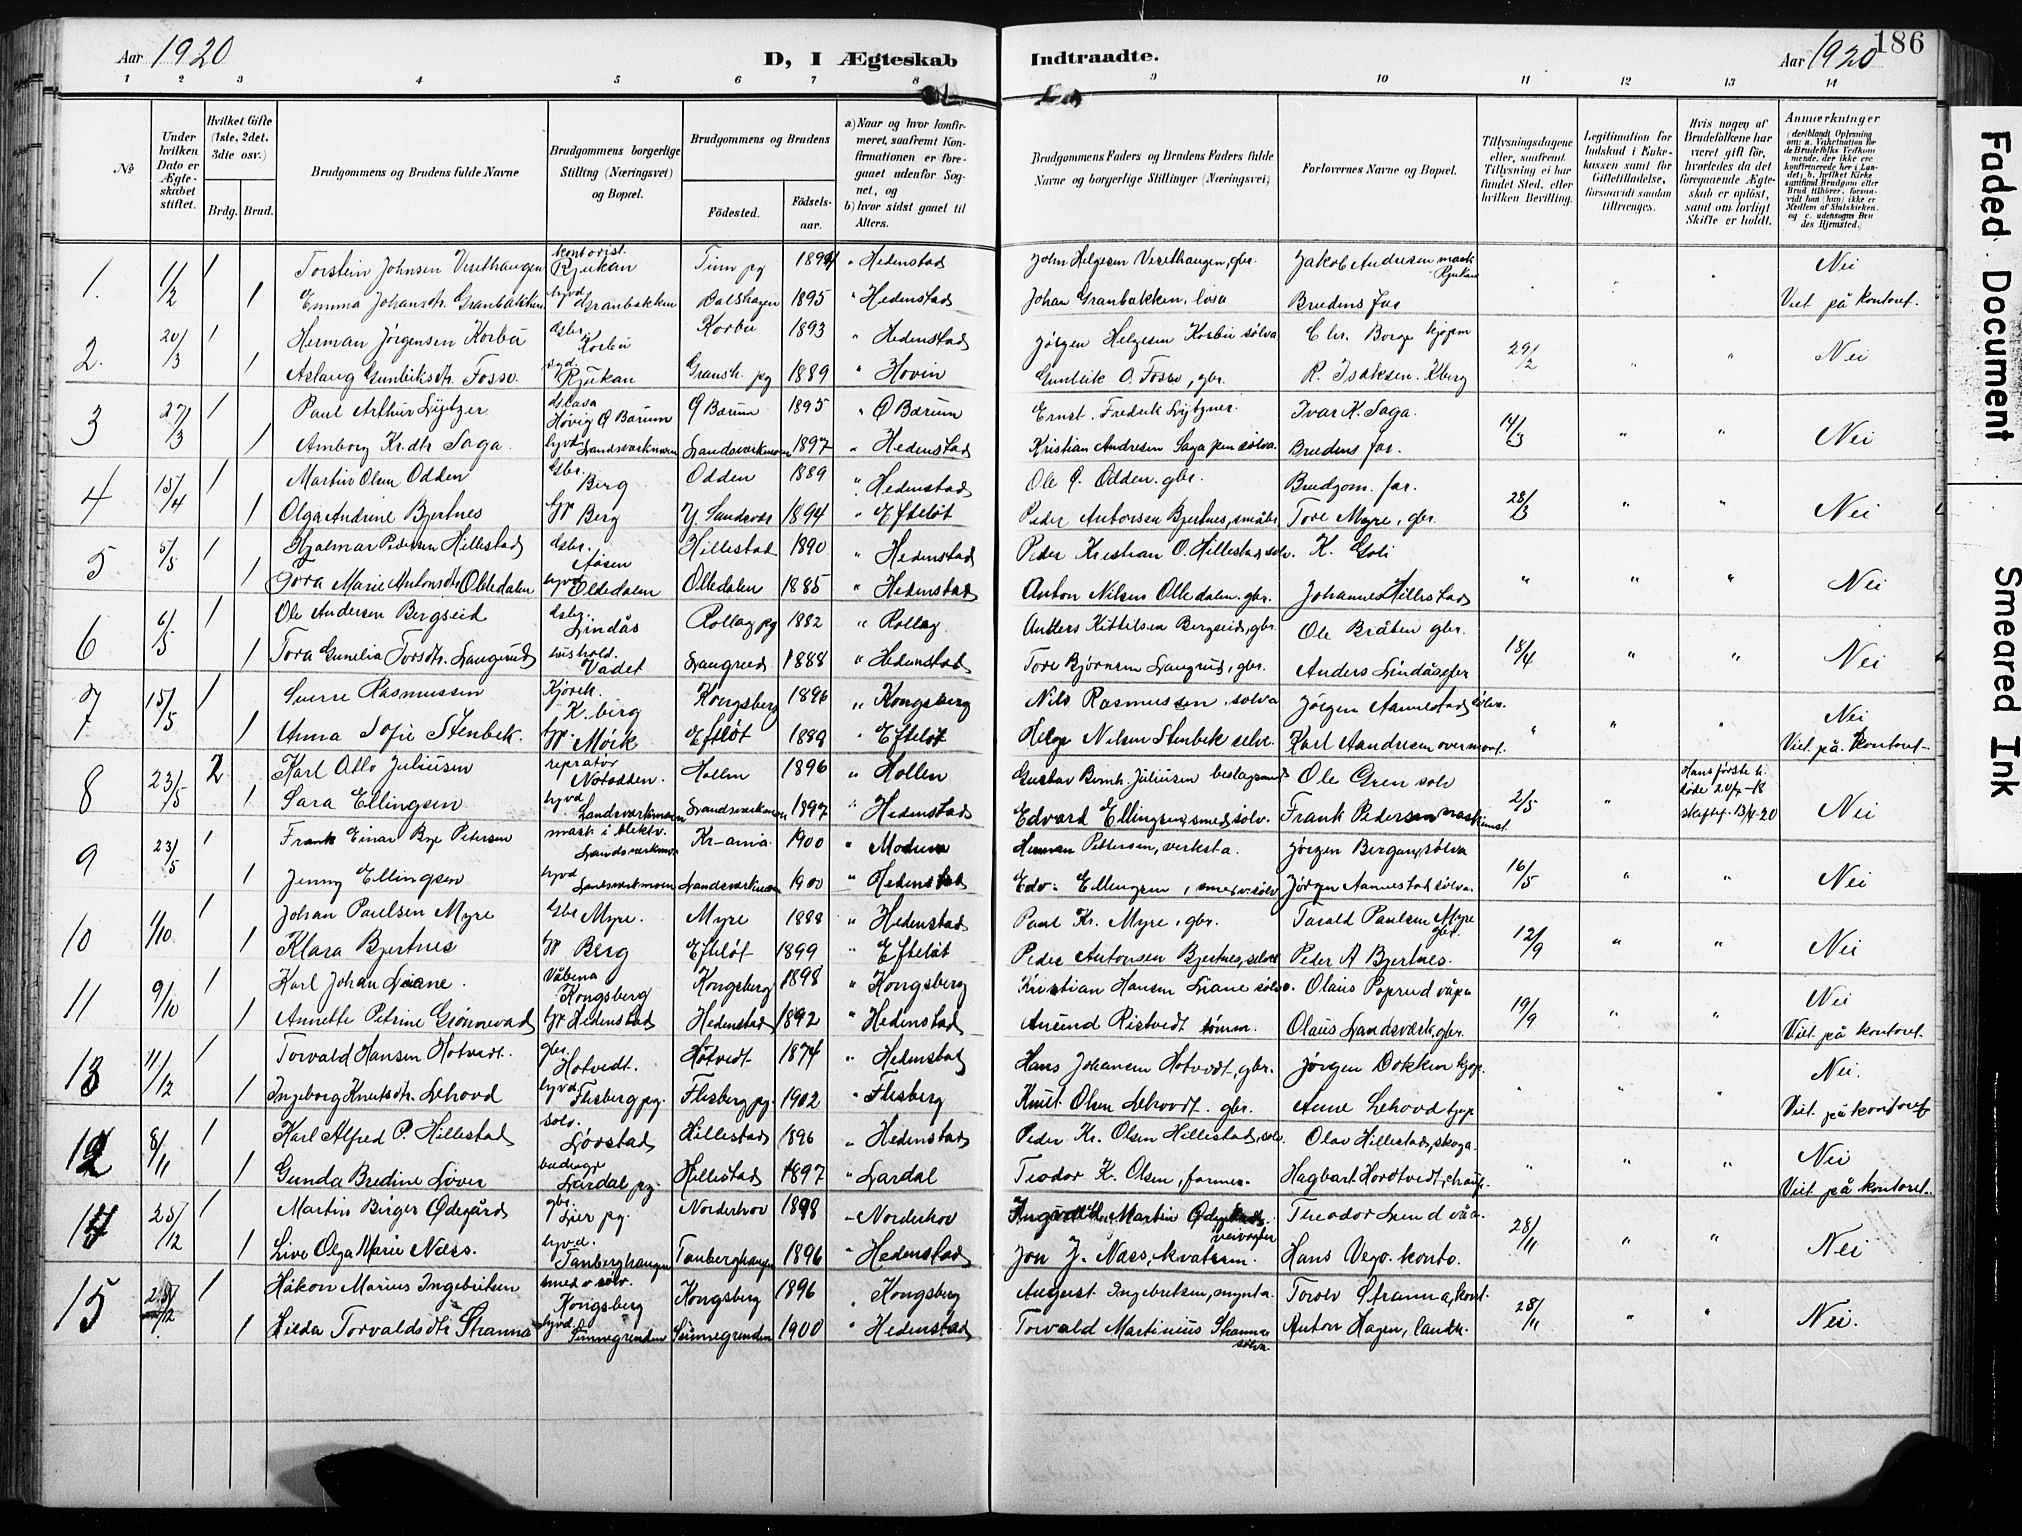 Aar 1920 D, I Ægteskab Indtraadte. Aar 1920 186
1 2 3 4 5 6 7 8 9 10 11 12 13 14
No
Under hvilken Dato er Ægteskabet stiftet.
Hvilket Gifte (1ste, 2det, 3die osv.)
Brdg. Brud.
Brudgommens og Brudens fulde Navne
Brudgommens borgerlige Stilling (Næringsvei) og Bopæl.
Brudgommens og Brudens
Fødested. Fødselsaar.
a) Naar og hvor konfirmeret, saafremt Konfirmationen er foregaaet udenfor Sognet, og
b) hvor sidst gaaet til Alters.
Brudgommens Faders og Brudens Faders fulde Navne og borgerlige Stillinger (Næringsvei)
Forlovernes Navne og Bopæl.
Tillysningsdagene eller, saafremt Tillysning ei har fundet Sted, efter hvilken Bevilling.
Legitimation for Indskud i Enkekassen samt for Giftetilladelse, forsaavidt saadan tiltrænges.
Hvis nogen af Brudefolkene har været gift før, hvorledes da det foregaaende Ægteskab er opløst, samt om lovligt Skifte er holdt.
Anmærkninger (deriblandt Oplysning om: a. Vakcination for de Brudefolks Vedkommende, der ikke ere konfirmerede her i Landet; b. hvilket Kirkesamfund Brudgom eller Brud tilhører, forsaavidt han (hun) ikke er Medlem af Statskirken, og c. udensogns Brudes Hjemsted.)
1. 1/2 1 Torstein Johnsen Veslthaugen kontorist. Rjukan Tinn pg 1894 " Hedenstad John Helgesen Veslthaugen, gbr. Jakob Andresen mask Rjukan " Nei
1 Emma Johansdtr. Granbakken hyvd Granbakken Dalshagen 1895 " Hedenstad Johan Granbakken, losa Brudens far Viet på kontoret.
2. 20/3 1 Herman Jørgensen Korbu Gbr. Korbu Korbu 1893 " Hedenstad Jørgen Helgesen Korbu sølva Chr. Borge kjøpm 29/2 " " Nei
1 Aslaug Gunliksdtr. Fosso. Rjukan Gransh. pg 1889 " Hovin Gunleik O. Fosso, gbr. R. Isaksen. Kberg
3 27/3 1 Paul Arthur Lytzer Høvig Ø Bærum Ø Bærum 1895 " Ø Bærum Ernst. Fredrik Lytzner. Ivar K. Saga. 14/3 " " Nei
1 Amborg Kr.dtr Saga. hyvd Landsverkmoen Landsverkmoen 1897 " Hedenstad Kristian Andresen Saga pen sølva. Brudens far.
4 15/4 1 Martin Olsen Odden Gbr. Berg Odden 1889 " Hedenstad Ole O. Odden. gbr. Brudgom. far. 28/3 " " Nei
1 Olga Andrine Bjertnes Berg Y. Sandsvær 1894 " Efteløt Peder Antonsen Bjertnes, småbr Tore Myre, gbr.
5 5/5 1 Hjalmar Pedersen Hillestad Gbr. Aasen Hillestad 1890 " Hedenstad Peder Kristian O. Hillestad, sølv. K. Goli " " " Nei
1 Tora Marie Antonsdtr Olledalen hyvd Olledalen Olledalen 1885 " Hedenstad Anton Nilsen Olledalen. gbr. Johannes Hillestad
6 6/5 1 Ole Andersen Bergseid Gbr. Lindås Rollag pg 1882 " Rollag Anders Kittilsen Bergseid, gbr. Ole Bråten gbr. 18/4 " " Nei
1 Tora Gunelia Torsdtr. Langerud hushold. Vadet Langrud 1888 " Hedenstad Tore Bjørnsen Langrud, gbr. Anders Lindåsgbr
7 15/5 1 Sverre Rasmussen K.berg Kongsberg 1896 " Kongsberg Nils Rasmussen, sølva Jørgen Aannestad sølv. " " " Nei
1 Anna Sofie Stenbek. Mørk Efteløt 1889 " Efteløt Helge Nilsen Stenbek sølv. Karl Aandresen overmont. Viet på kontoret-
8 23/5 2 Karl Otto Juliusen repratør Notodden. Hollen 1896 " Hollen Gustav Bernh. Juliusen beslagsmed Ole Gren sølv 2/5 " Hans første h. døde 20/7-18 skiftef. 13/4-20 Nei
1 Sara Ellingsen hyvd Landsverkmoen Landsverkmoen 1897 " Hedenstad Edvard Ellingsen, smed, sølv. Frank Pedersen maskinist.
9 23/5 1 Frank Einar Bye Petersen mask i elektv. Landsverkmo Kr-ania 1900 " Modum Herman Pettersen, verksta. Jørgen Bergan, sølva 16/5 " " Nei
1 Jenny Ellingsen hyvd Landsverkmoen Landsverkmoen 1900 " Hedenstad Edv. Ellingsen, smed v. sølv Jørgen Aannestad sølva.
10 1/10 1 Johan Paulsen Myre Gbr Myre. Myre 1888 " Hedenstad Paul Kr. Myre, gbr. Tarald Paulsen Myre gbr. 12/9 " " Nei
1 Klara Bjertnes Berg Efteløt 1899 " Efteløt Peder Antonsen Bjertnes, sølv Peder A Bjertnes.
11 9/10 1 Karl Johan Liane. Våbena Kongsberg Kongsberg 1898 " Kongsberg Kristian Hansen Liane sølv. Olaus Poprud våpa 19/9 " " Nei
1 Annette Petrine Grønnevad Hedenstad Hedenstad 1892 " Hedenstad Anund Ristvedt tømm. Olaus Landsværk, gbr. Viet på kontoret.
13 11/12 1 Torvald Hansen Hotvedt. gbr. Hotvedt. Hotvedt 1874 " Hedenstad Hans Johansen Hotvedt, gbr. Jørgen Dokken kjøp. " " " Nei.
1 Ingeborg Knutsdtr. Lehovd hyvd. Flesberg pg. Flesberg pg. 1902 " Flesberg Knut Olsen Lehovdt. gbr. Anne Lehovd kjøp Viet på kontoret
12 8/11 1 Karl Alfred P. Hillestad sølv. Lørstad Hillestad 1896 " Hedenstad Peder Kr. Olsen Hillestad, sølv. Olav Hillestad, skoga " " " Nei
1 Gunda Bredine Lover Lardal pg. Hillestad 1897 " Lardal Teodor K. Olsen, former. Hagbart Hordtvedt, chauf. Viet på kontoret.
14 25/12 1 Martin Birger Ødegård gbr. Lier pg. Norderhov 1898 " Norderhov Martin veivogter Theodor Lund våa. 28/11 " " Nei
1 Live Olga Marie Næss. hyvd. Tanberghaugen Tanberghaugen 1896 " Hedenstad Jon J. Næss, kvatserm. Hans Vego. konto.
15 25/12 1 Håkon Marius Ingebritsen smed v sølv. Kongsberg Kongsberg 1896 " Kongsberg August Ingebretsen, mynta. Torolv Stranna, kont. 28/11 " " Nei.
1 Hilda Torvaldsdtr Stranna hyvd. Sünnegrenden Sünnegrenden 1900 " Hedenstad Torvald Martinius Stranna sølva. Anton Hagen, landh.
Faded Document
Smeared Ink